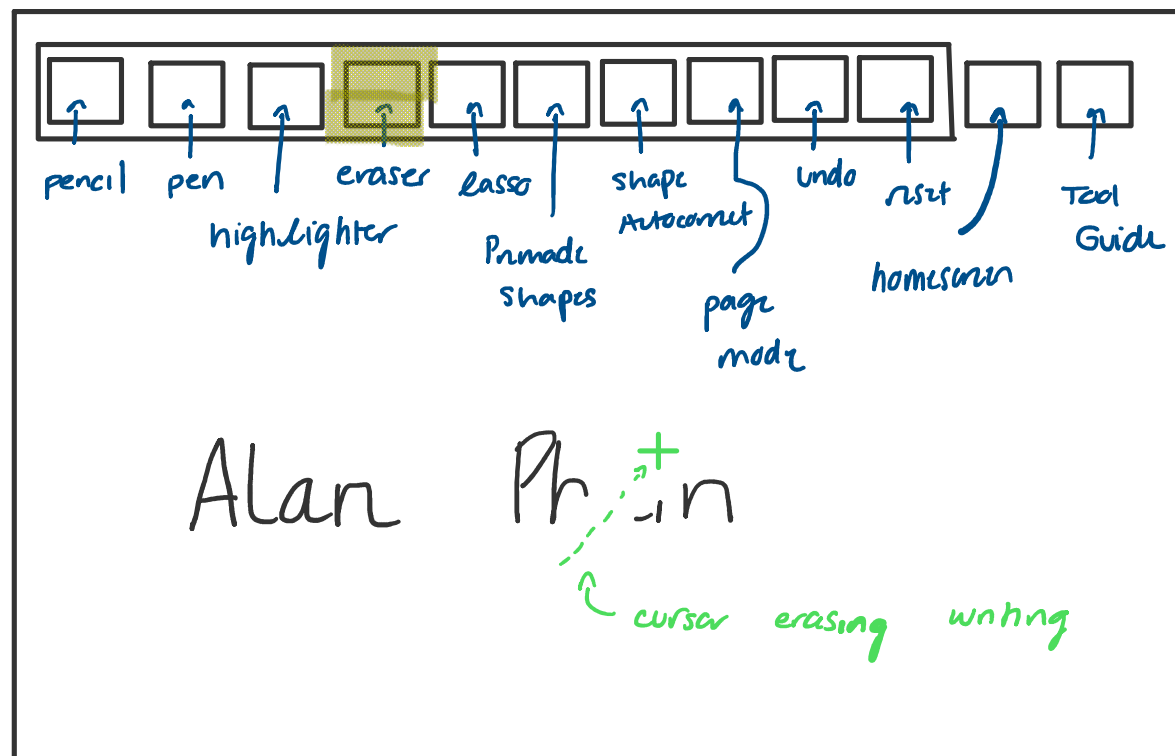 pencil
pen
highlighter
eraser
lasso
Premade
Shapes
shape
Autocorrect
page
mode
undo
reset
homescreen
Tool
Guide
Alan Ph n
cursor erasing writing